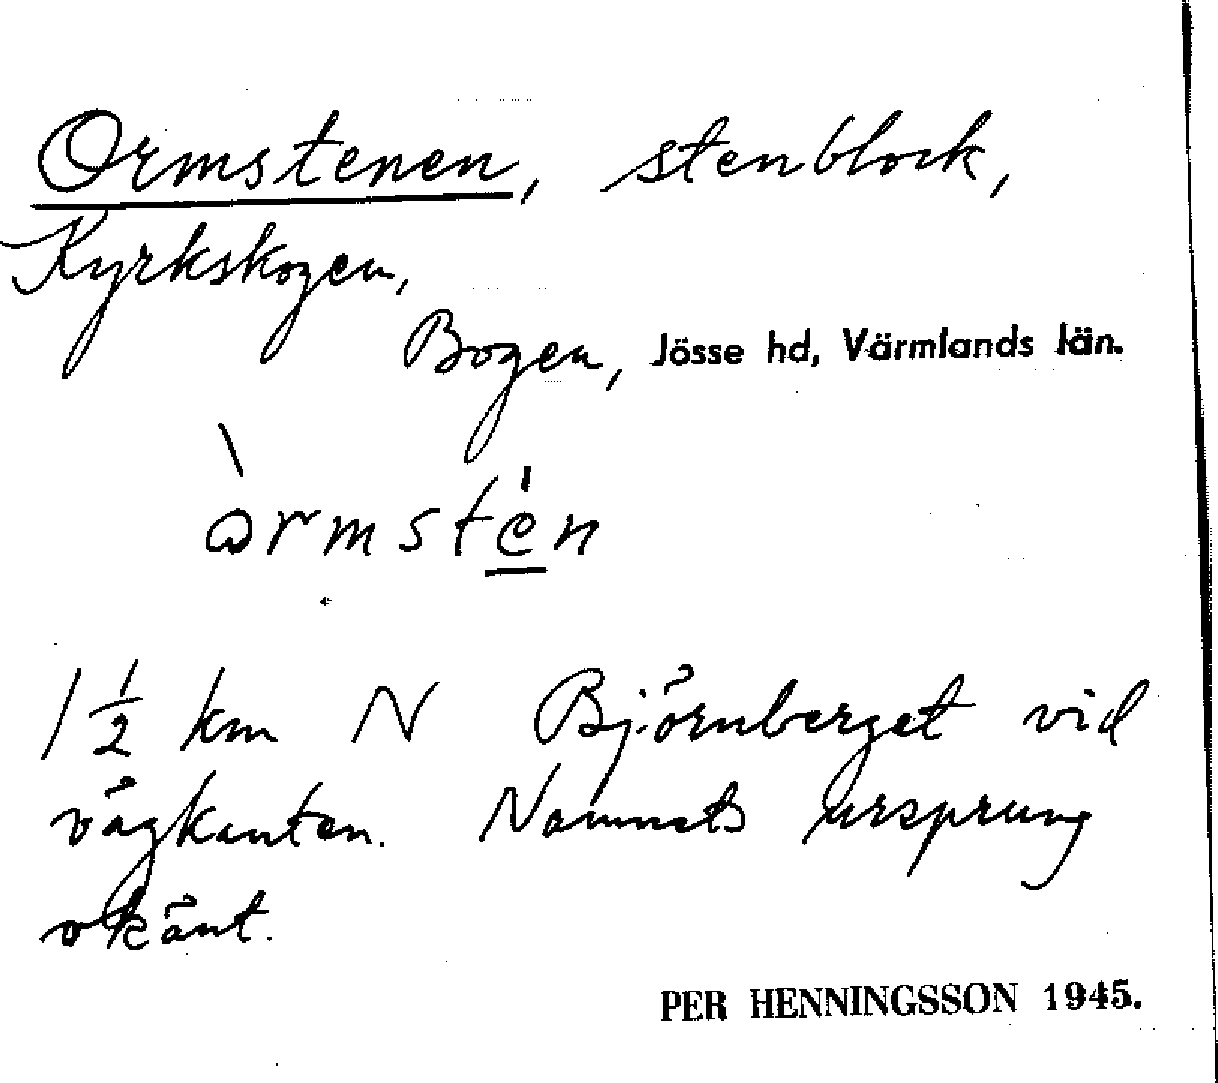 Ormstenen, stenblock,
Kyrkskogen,
Bogen, Jösse hd, Värmlands län.
òrmstén
1 1/2 km N Björnberget vid
vägkanten. Namnets ursprung
okänt.
PER HENNINGSSON 1945.